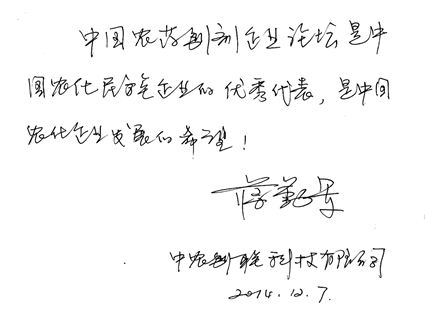 中国农药制剂企业论坛是中
国农化民族企业的优秀代表，是中国
农化企业发展的希望！
中农联科技有限公司
2014.12.7.